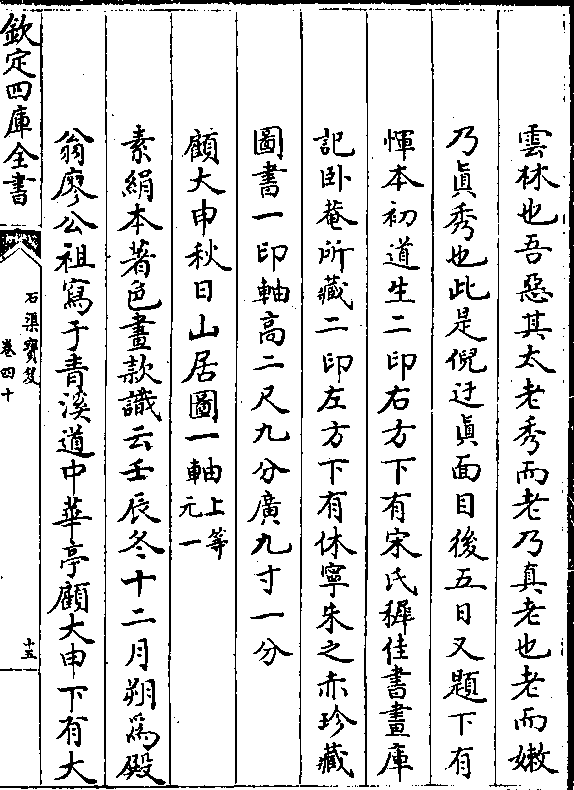 雲林也吾惡其太老秀而老乃真老也老而嫩
乃眞秀也此是倪迂眞面目後五日又題下有
惲本初道生二印右方下有宋氏穉佳書畫庫
記卧菴所藏二印左方下有休寧朱之赤珍藏
圖書一印軸高二尺九分廣九寸一分
顧大申秋日山居圖一軸上等元一
素絹本著色畫款識云壬辰冬十二月朔爲殿
翁廖公祖寫于青溪道中華亭顧大申下有大
欽定四庫全書
石渠寳笈
卷四十
十五